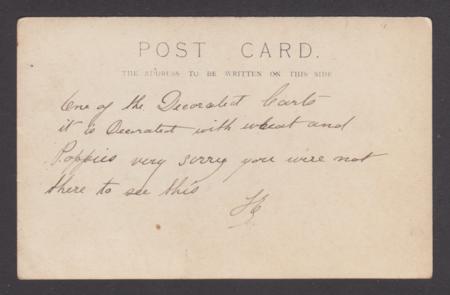 POST CARD.
THE ADDRESS TO BE WRITTEN ON THIS SIDE
One of the Decorated Carts
it is Decorated with wheat and
Poppies very sorry you were not
there to see this